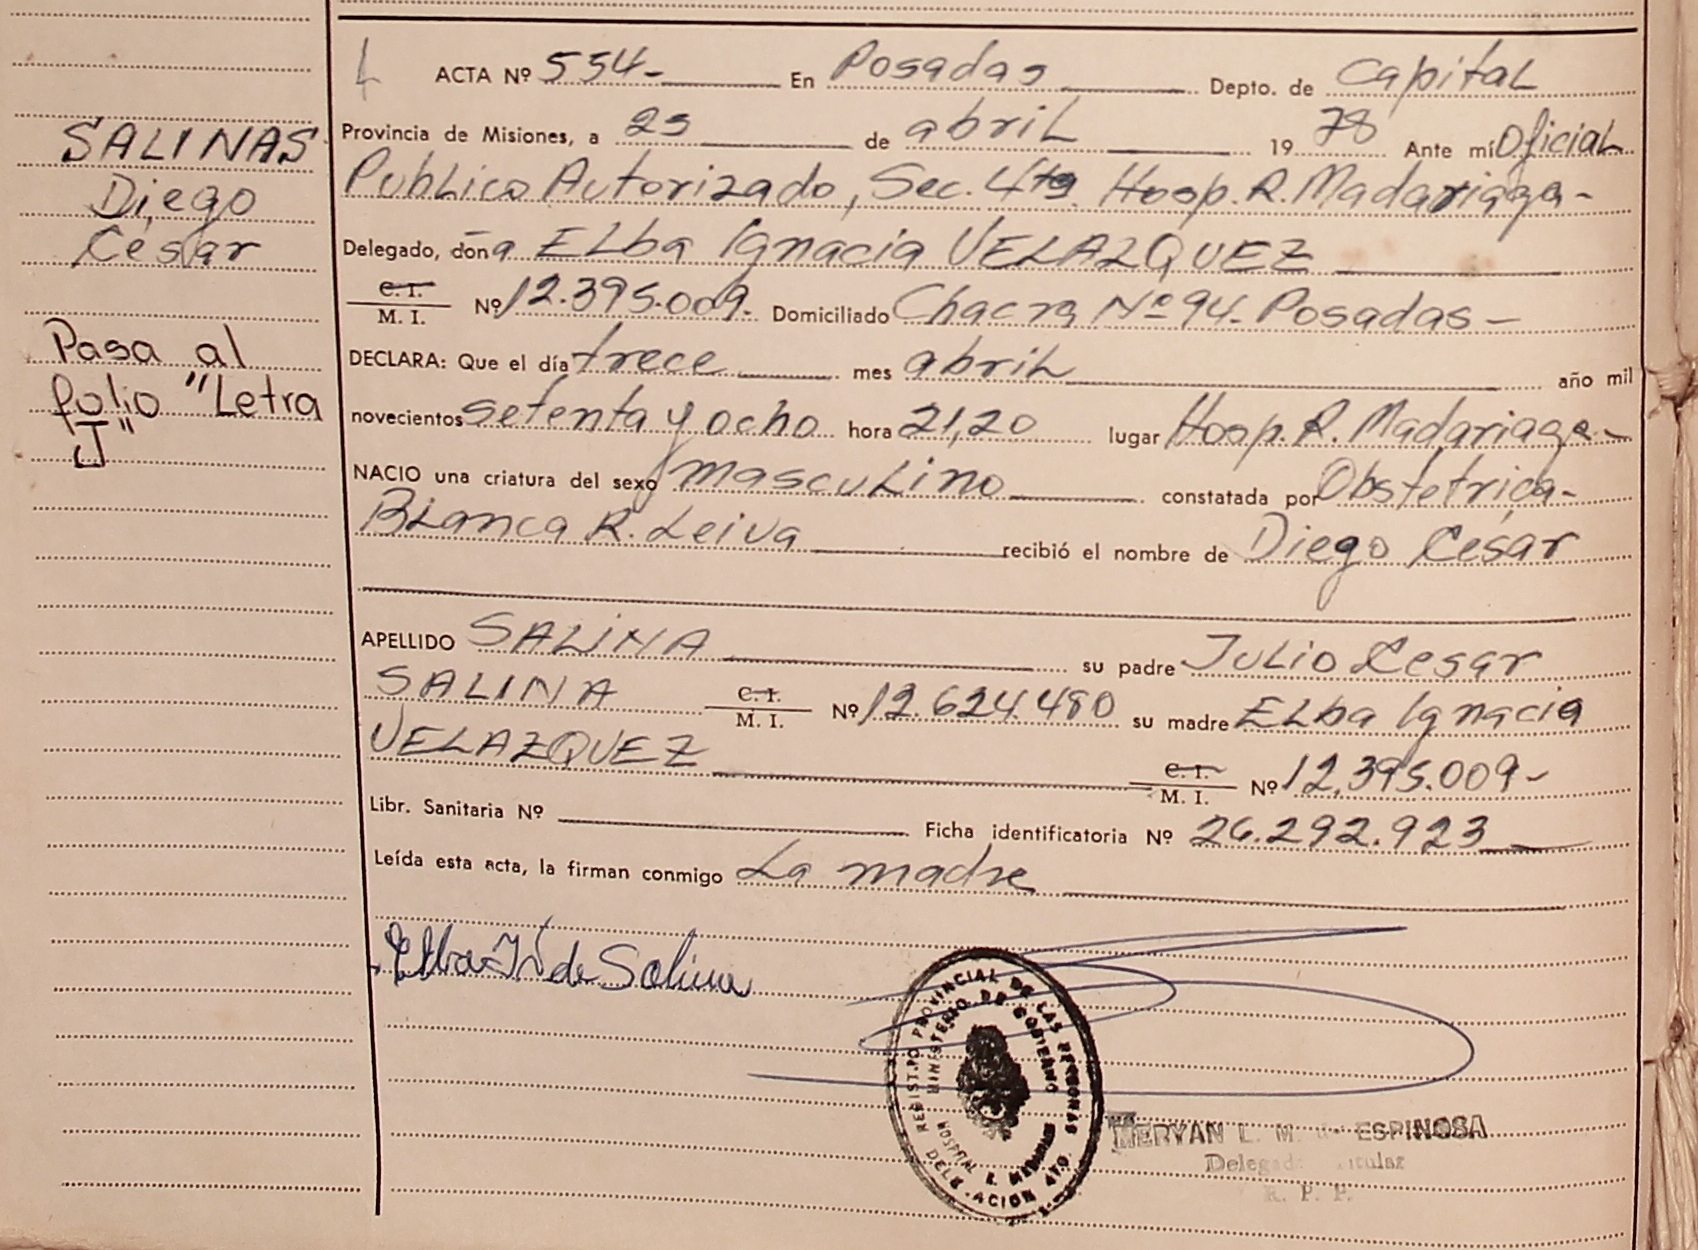 SALINAS
Diego
César
Pasa al
folio "Letra
J"
ACTA Nº 554- En Posadas Depto. de Capital
Provincia de Misiones, a 25 de abril 1978 Ante mí Oficial
Publico Autorizado, Sec. 4ta. Hosp. R. Madariaga-
Delegado, doña Elba Ignacia VELAZQUEZ
C. I.
M. I. Nº 12.395.009- Domiciliado Chacra Nº 94- Posadas-
DECLARA: Que el día trece mes abril año mil
novecientos setenta y ocho hora 21,20 lugar Hosp. R. Madariaga-
NACIO una criatura del sexo masculino constatada por Obstetrica-
Blanca R. Leiva recibió el nombre de Diego César
APELLIDO SALINA su padre Julio Cesar
SALINA C. I. M. I. Nº 12.624.480 su madre Elba Ignacia
VELAZQUEZ C. I. M. I. Nº 12.395.009-
Libr. Sanitaria Nº Ficha identificatoria Nº 26.292.923
Leída esta acta, la firman conmigo La madre
Elba I V de Salina
REGISTRO PROVINCIAL DE LAS PERSONAS
MINISTERIO DE GOBIERNO
HOSPITAL R. MADARIAGA
DELEGACION 4TA.
MERYAN L. M. de ESPINOSA
Delegada Titular
R. P. P.